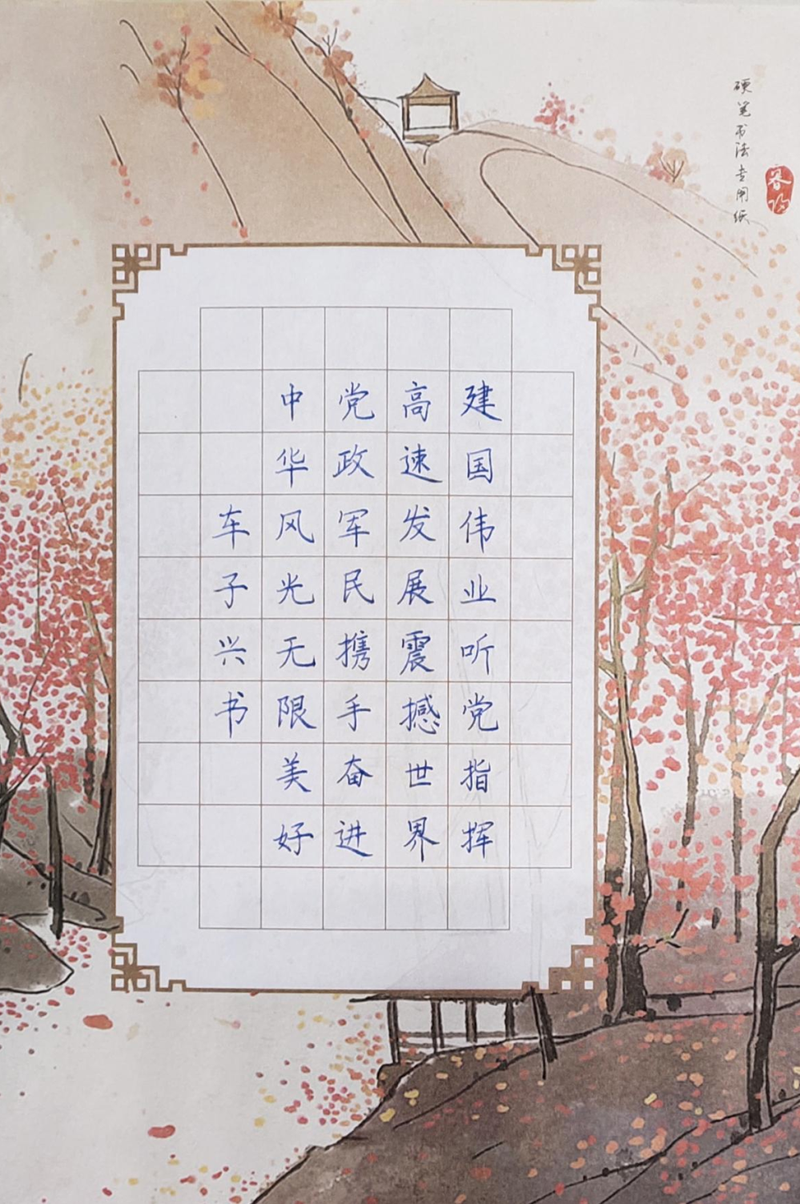 硬笔书法专用纸
建国伟业听党指挥
高速发展震撼世界
党政军民携手奋进
中华风光无限美好
车子兴书